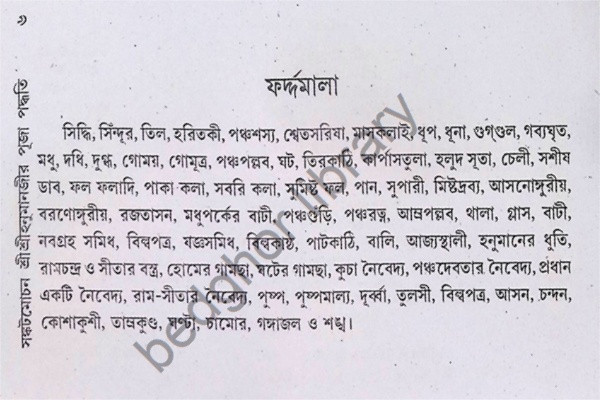 ৬
সঙ্কটমোচন শ্রীশ্রীহনুমানজীর পূজা পদ্ধতি
ফর্দ্দমালা
সিদ্ধি, সিঁন্দূর, তিল, হরিতকী, পঞ্চশস্য, শ্বেতসরিষা, মাসকলাই, ধূপ, ধূনা, গুগ্গুল, গব্যঘৃত,
মধু, দধি, দুগ্ধ, গোময়, গোমূত্র, পঞ্চপল্লব, ঘট, তিরকাঠি, কার্পাসতুলা, হলুদ সূতা, চেলী, সশীষ
ডাব, ফল ফলাদি, পাকা কলা, সবরি কলা, সুমিষ্ট ফল, পান, সুপারী, মিষ্টদ্রব্য, আসনোঙ্গুরীয়,
বরণোঙ্গুরীয়, রজতাসন, মধুপর্কের বাটী, পঞ্চগুঁড়ি, পঞ্চরত্ন, আম্রপল্লব, থালা, গ্লাস, বাটী,
নবগ্রহ সমিধ, বিল্বপত্র, যজ্ঞসমিধ, বিল্বকাষ্ঠ, পাটকাঠি, বালি, আজ্যস্থালী, হনুমানের ধুতি,
রামচন্দ্র ও সীতার বস্ত্র, হোমের গামছা, ঘটের গামছা, কুচা নৈবেদ্য, পঞ্চদেবতার নৈবেদ্য, প্রধান
একটি নৈবেদ্য, রাম-সীতার নৈবেদ্য, পুষ্প, পুষ্পমাল্য, দূর্ব্বা, তুলসী, বিল্বপত্র, আসন, চন্দন,
কোশাকুশী, তাম্রকুণ্ড, ঘণ্টা, চামোর, গঙ্গাজল ও শঙ্খ।
bedghor library